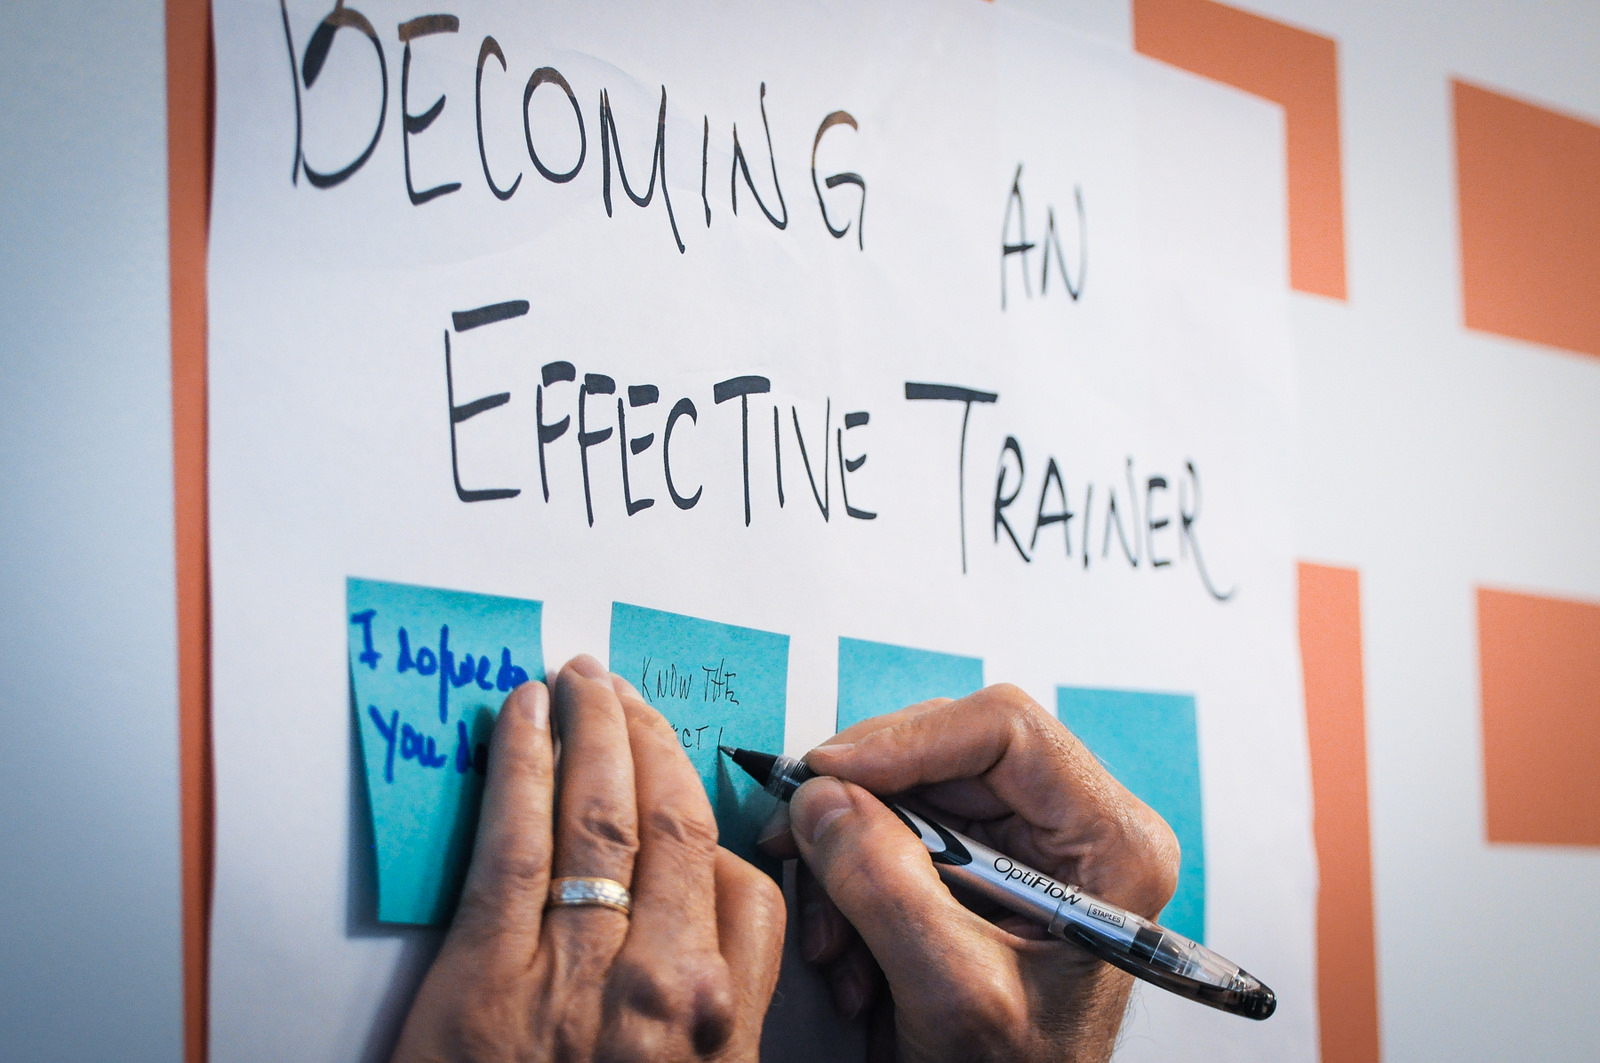 BECOMING AN
EFFECTIVE TRAINER
I
You
KNOW THE
OptiFlow
STAPLES